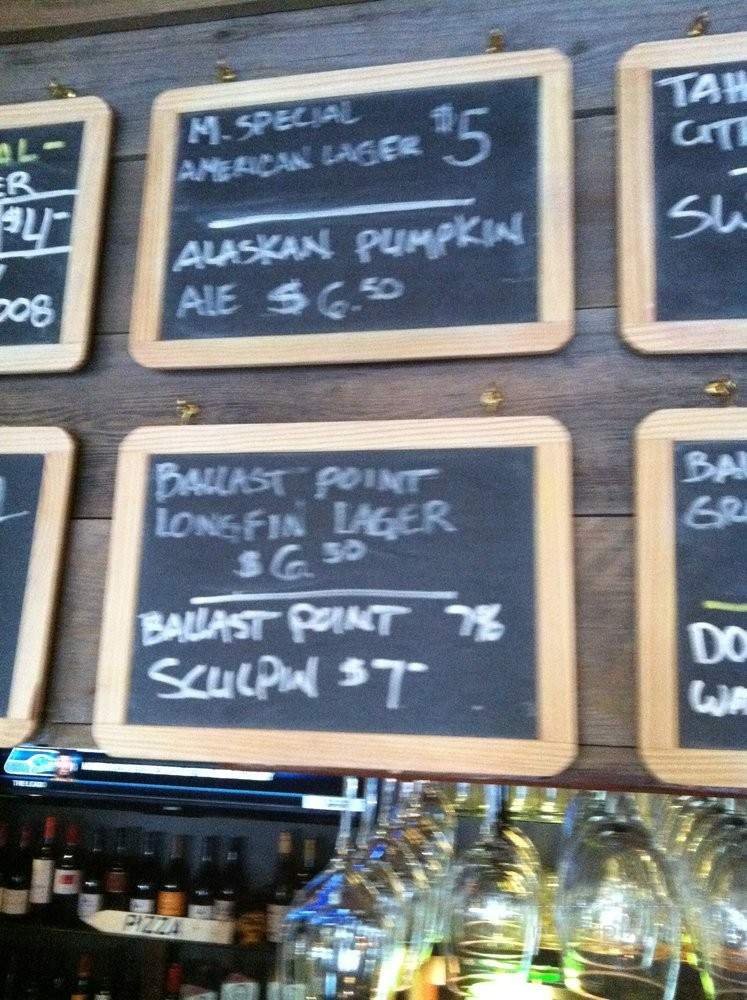 AL-
ER
$4-
008
M. SPECIAL
AMERICAN LAGER $5
ALASKAN PUMPKIN
ALE $6.50
TAH
CITR
SW
BALLAST POINT
LONGFIN LAGER
$6.50
BALLAST POINT 7%
SCULPIN $7-
BAL
GR
DO
WA
PIZZA